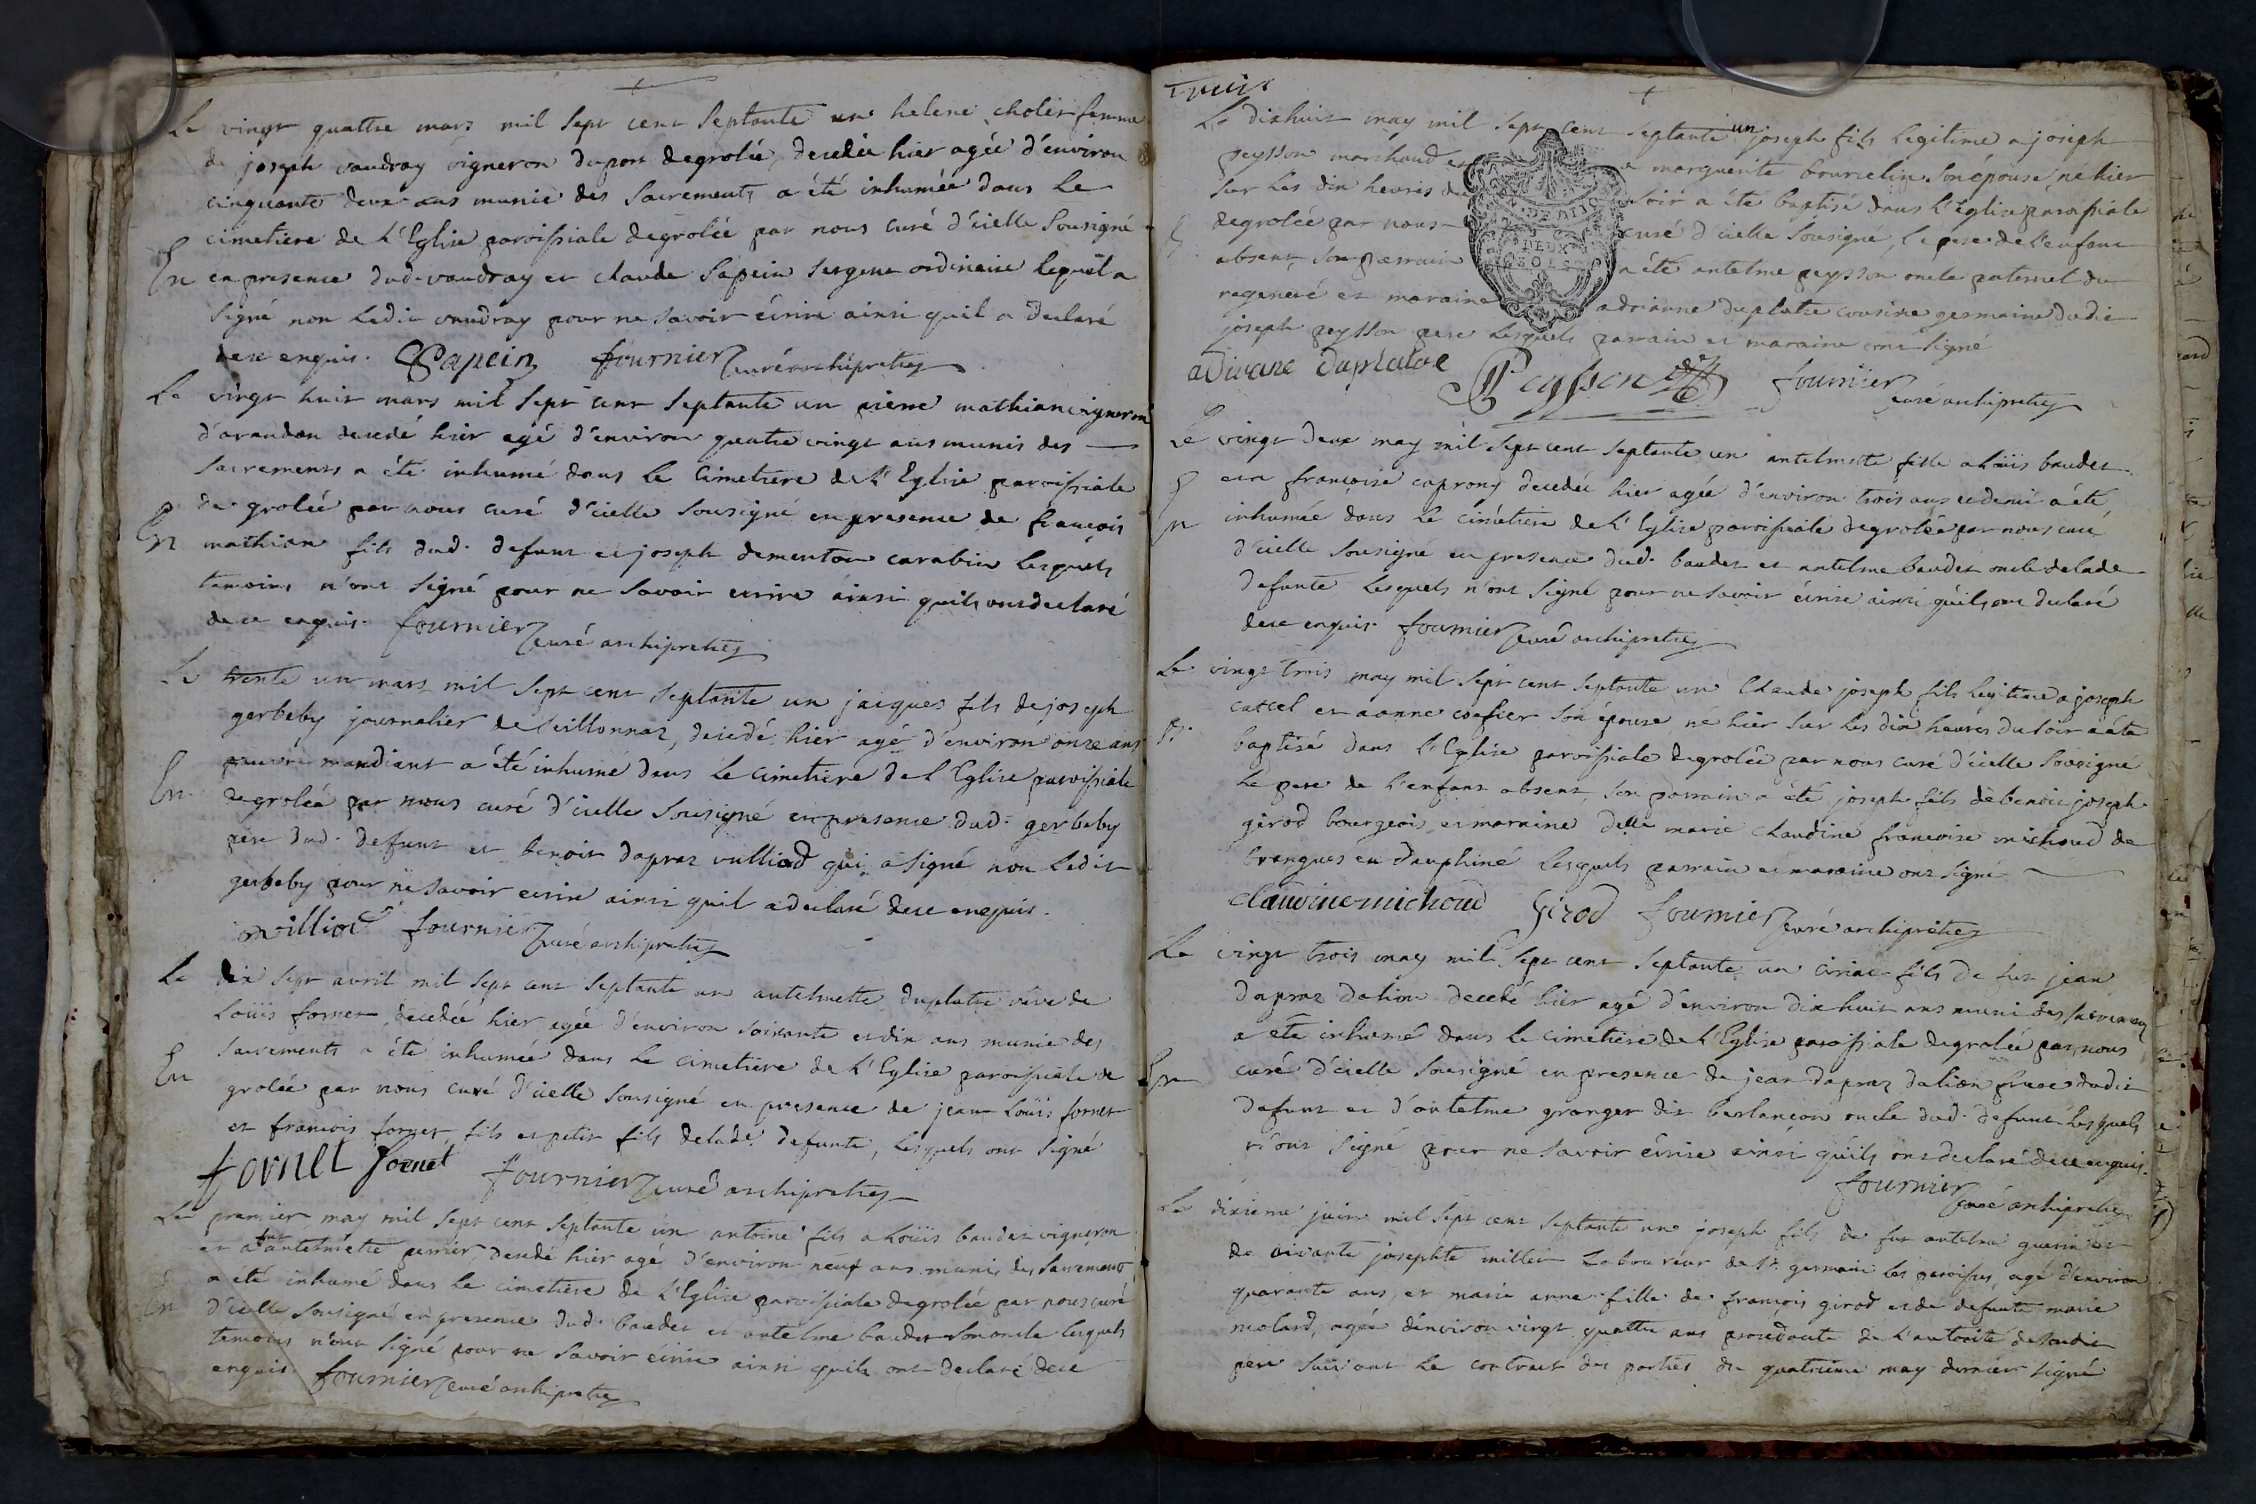 Le vingt quattre mars mil sept cent septante un helene cholet femme
de joseph vaudray vigneron du port de grolée, decedée hier agée d'environ
cinquante deux ans munie des sacrements a été inhumée dans le
cimetiere de l'Eglise paroissiale de grolée par nous curé d'icelle sousigné
En en presence dud. vaudray et claude sapein sergent ordinaire lequel a
signé non ledit vaudray pour ne savoir écrire ainsi quil a declaré
de ce enquis. CSapein fournier curé archipretre
Le vingt huit mars mil sept cent septante un pierre mathian vigneron
d'arandon decedé hier agé d'environ quatre vingt ans munis des
sacrements a été inhumé dans le cimetiere de l'Eglise paroissiale
de grolée par nous curé d'icelle sousigné en presence de françois
En mathian fils dud. defunt et joseph dementon carabin lesquels
temoins n'ont signé pour ne savoir ecrire ainsi quils ont declaré
de ce enquis. fournier curé archipretre
Le trente un mars mil sept cent septante un jacques fils de joseph
gerbeby journalier de seillonnaz, decedé hier agé d'environ onze ans
pauvre mandiant a été inhumé dans le cimetiere de l'Eglise paroissiale
En de grolée par nous curé d'icelle sousigné en presence dud. gerbeby
pere dud. defunt et benoit dapraz vulliod qui a signé non ledit
gerbeby pour ne savoir ecrire ainsi quil a declaré de ce enquis.
vulliod fournier curé archipretre
Le dix sept avril mil sept cent septante un antelmette duplatre veve de
Loüis fornet, decedée hier agée d'environ soixante et dix ans munie des
sacrements a été inhumée dans le cimetiere de l'Eglise paroissiale de
En grolée par nous curé d'icelle sousigné en presence de jean Loüis fornet
et francois fornet, fils et petit fils delade. defunte, lesquels ont signé
fornet fornet fournier curé archipretre
Le premier may mil sept cent septante un antoine fils a Loüis baudet vigneron
et a fut antelmette perrier decedé hier agé d'environ neuf ans munis des sacrements
a été inhumé dans le cimetiere de l'Eglise paroissiale de grolée par nous curé
En d'icelle sousigné en presence dud. baudet et antelme baudet son oncle lesquels
temoins n'ont signé pour ne savoir écrire ainsi quils ont declaré de ce
enquis. fournier curé archipretre
Le dixhuit may mil sept cent septante un joseph fils legitime a joseph
peysson marchand et a marguerite bourcelin son épouse, né hier
sur les dix heures du soir a été baptisé dans l'Eglise paroissiale
de grolée par nous curé d'icelle sousigné, le pere de l'enfant
absent, son parrain a été antelme peysson oncle paternel du
regeneré et maraine adrianne duplatre cousine germaine dudit
joseph peysson pere lesquels parrain et maraine ont signé
N.DE DIJO
DEUX
SOLS
adriane duplatre Peysson fournier curé archipretre
Le vingt deux may mil sept cent septante un antelmette fille a Loüis baudet
et a françoise caprony decedée hier agée d'environ trois ans et demi a été
En inhumée dans le cimetiere de l'Eglise paroissiale de grolée par nous curé
d'icelle sousigné en presence dud. baudet et antelme baudet oncle delade.
defunte lesquels n'ont signé pour ne savoir écrire ainsi quils ont declaré
de ce enquis. fournier curé archipretre
Le vingt trois may mil sept cent septante un Claude joseph fils legitime a joseph
cattel et a anne coefier son épouse né hier sur les dix heures du soir a été
baptisé dans l'Eglise paroissiale de grolée par nous curé d'icelle sousigné
le pere de l'enfant absent, son parrain a été joseph fils de benoit joseph
girod bourgeois et maraine delle marie claudine francoise michoud de
brangues en dauphiné lesquels parrain et maraine ont signé
claudine michoud Girod fournier curé archipretre
Le vingt trois may mil sept cent septante un ciriac fils de fut jean
dapraz dalion decedé hier agé d'environ dix huit ans muni des sacremens
a été inhumé dans le cimetiere de l'Eglise paroissiale de grolée par nous
En curé d'icelle sousigné en presence de jean dapraz dalion frere dudit
defunt et d'antelme granger dit berlancon oncle dud. defunt lesquels
n'ont signé pour ne savoir écrire ainsi quils ont declaré de ce enquis.
fournier curé archipretre
Le dixieme juin mil sept cent septante un joseph fils de fut antelme guerin et
de vivante josephte millet Laboureur de St. germain les paroisses, agé d'environ
quarante ans, et marie anne fille de françois girod et de defunte marie
molard, agée d'environ vingt quattre ans procedante de l'autorité de sondit
pere suivant le contract des parties du quatrieme may dernier signé